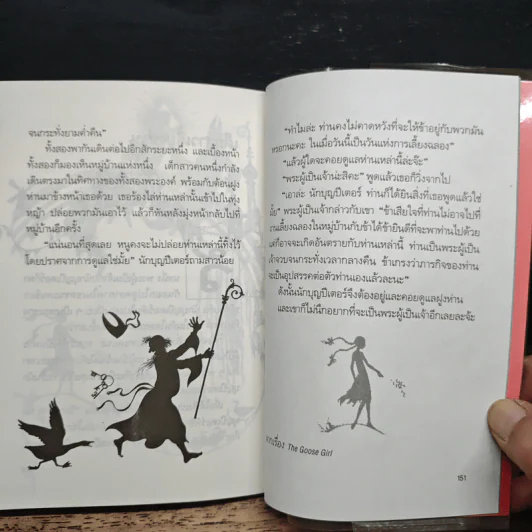 จนกระทั่งยามค่ำคืน"
ทั้งสองพากันเดินต่อไปอีกสักระยะหนึ่ง และเบื้องหน้า
ทั้งสองก็มองเห็นหมู่บ้านแห่งหนึ่ง เด็กสาวคนหนึ่งกำลัง
เดินตรงมาในทิศทางของทั้งสองพระองค์ พร้อมกับต้อนฝูง
ห่านมาข้างหน้าเธอด้วย เธอร้องไล่ห่านเหล่านั้นเข้าไปในทุ่ง
หญ้า ปล่อยพวกมันเอาไว้ แล้วก็หันหลังมุ่งหน้ากลับไปที่
หมู่บ้านอีกครั้ง
"แน่นอนที่สุดเลย หนูคงจะไม่ปล่อยห่านเหล่านี้ทิ้งไว้
โดยปราศจากการดูแลใช่มั้ย" นักบุญปีเตอร์ถามสาวน้อย
"ทำไมล่ะ ท่านคงไม่คาดหวังที่จะให้ข้าอยู่กับพวกมัน
หรอกนะคะ ในเมื่อวันนี้เป็นวันแห่งการเลี้ยงฉลอง"
"แล้วผู้ใดจะคอยดูแลห่านเหล่านี้ล่ะจ๊ะ"
"พระผู้เป็นเจ้าน่ะสิคะ" พูดแล้วเธอก็วิ่งจากไป
"เอาล่ะ นักบุญปีเตอร์ ท่านก็ได้ยินสิ่งที่เธอพูดแล้วใช่
มั้ย" พระผู้เป็นเจ้ากล่าวกับเขา "ข้าเสียใจที่ท่านไม่อาจไปที่
งานเลี้ยงฉลองในหมู่บ้านกับข้าได้ข้ายินดีที่จะพาท่านไปด้วย
แต่ก็อาจจะเกิดอันตรายกับห่านเหล่านี้ ท่านเป็นพระผู้เป็น
เจ้าจวบจนกระทั่งเวลากลางคืน ข้าเกรงว่าภารกิจของท่าน
จะเป็นอุปสรรคต่อตัวท่านเองแล้วละนะ"
ดังนั้นนักบุญปีเตอร์จึงต้องอยู่และคอยดูแลฝูงห่าน
และเขาก็ไม่นึกอยากที่จะเป็นพระผู้เป็นเจ้าอีกเลยละจ้ะ
จากเรื่อง The Goose Girl
151